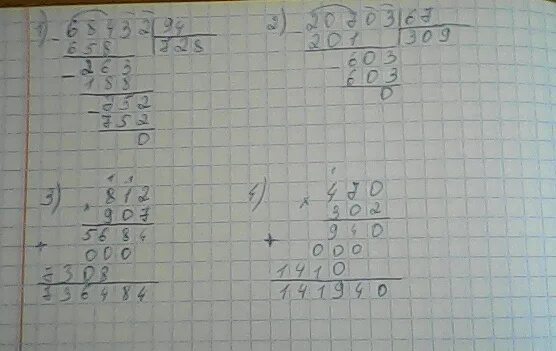 1) - 68432 | 94
658 728
- 263
188
- 752
752
0
2) - 20703 | 67
201 309
- 603
603
0
1 1
3) 812
× 907
5684
+ 000
7308
736484
1
4) × 470
302
940
+ 000
1410
141940